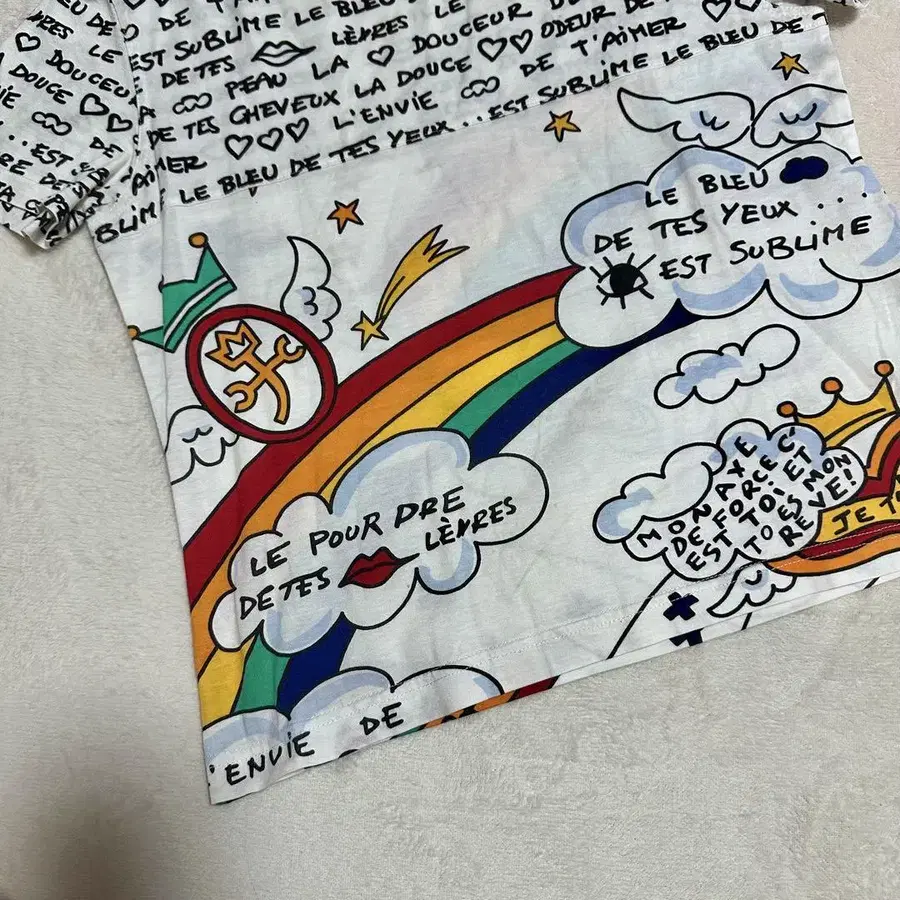 LE BLEU
BLEU DE DE T'AIMER EST SUBLIME LE BLEU
LÈVRES LE DE TES LÈVRES LE DOUCEUR
DOUCEUR PEAU LA DOUCEUR ODEUR DE
DOUCE DE TES CHEVEUX LA DOUCE DE T'AIMER
L'ENVIE EST SUBLIME LE BLEU DE
LE BLEU DE TES YEUX . . EST SUBLIME
LE BLEU
DE TES YEUX . . .
EST SUBLIME
MON AXE
DE FORCE C'
EST TOI ET
TO ES MON
REVE!
JE T
LE POUR DRE
DE TES LÈVRES
L'ENVIE DE